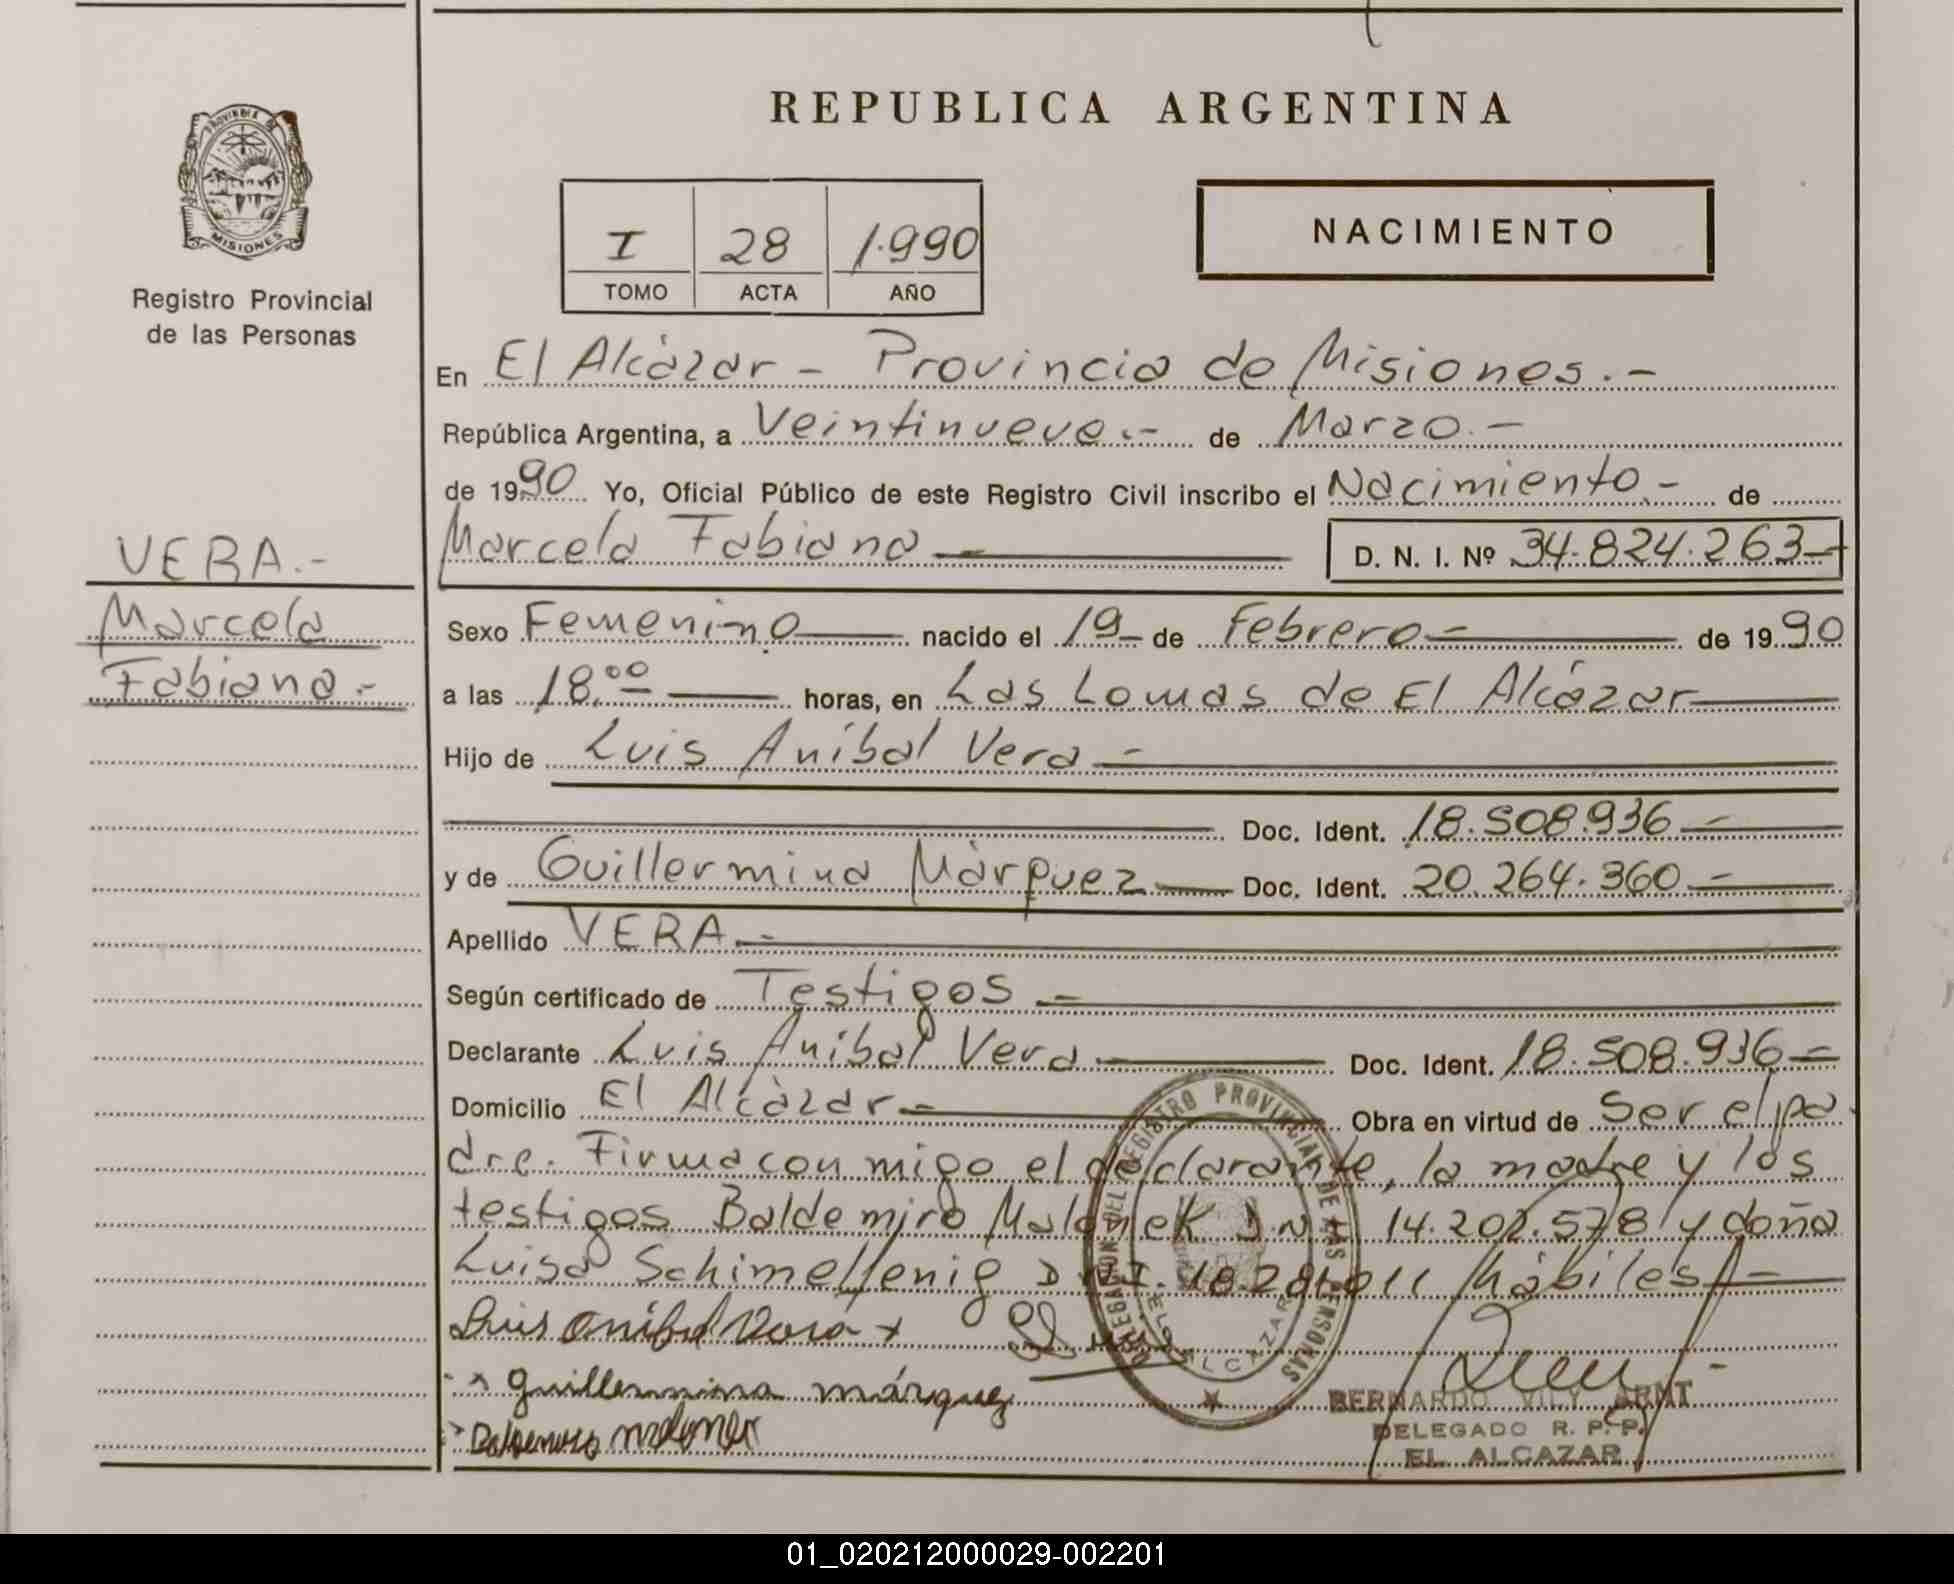 REPUBLICA ARGENTINA
PROVINCIA DE
MISIONES
Registro Provincial
de las Personas
I 28 1.990
TOMO ACTA AÑO
NACIMIENTO
VERA.-
Marcela
Fabiana.-
En El Alcázar - Provincia de Misiones.-
República Argentina, a Veintinueve.- de Marzo.-
de 1990 Yo, Oficial Público de este Registro Civil inscribo el Nacimiento.- de
Marcela Fabiana D. N. I. Nº 34.824.263
Sexo Femenino nacido el 19 de Febrero de 1990
a las 18.00 horas, en Las Lomas de El Alcázar
Hijo de Luis Aníbal Vera
Doc. Ident. 18.508.936
y de Guillermina Márquez Doc. Ident. 20.264.360
Apellido VERA
Según certificado de Testigos
Declarante Luis Aníbal Vera Doc. Ident. 18.508.936
Domicilio El Alcázar Obra en virtud de Ser el pa
dre. Firma conmigo el declarante, la madre y los
testigos Baldemiro D.N.I. 14.202.578 y doña
Luisa Schimelfenig D.N.I. hábiles
Luis Anibal Vera
Guillermina márquez
DELEGACION DEL REGISTRO PROVINCIAL DE LAS PERSONAS
EL ALCAZAR
BERNARDO VILY ARNT
DELEGADO R. P. P.
EL ALCAZAR
01_020212000029-002201